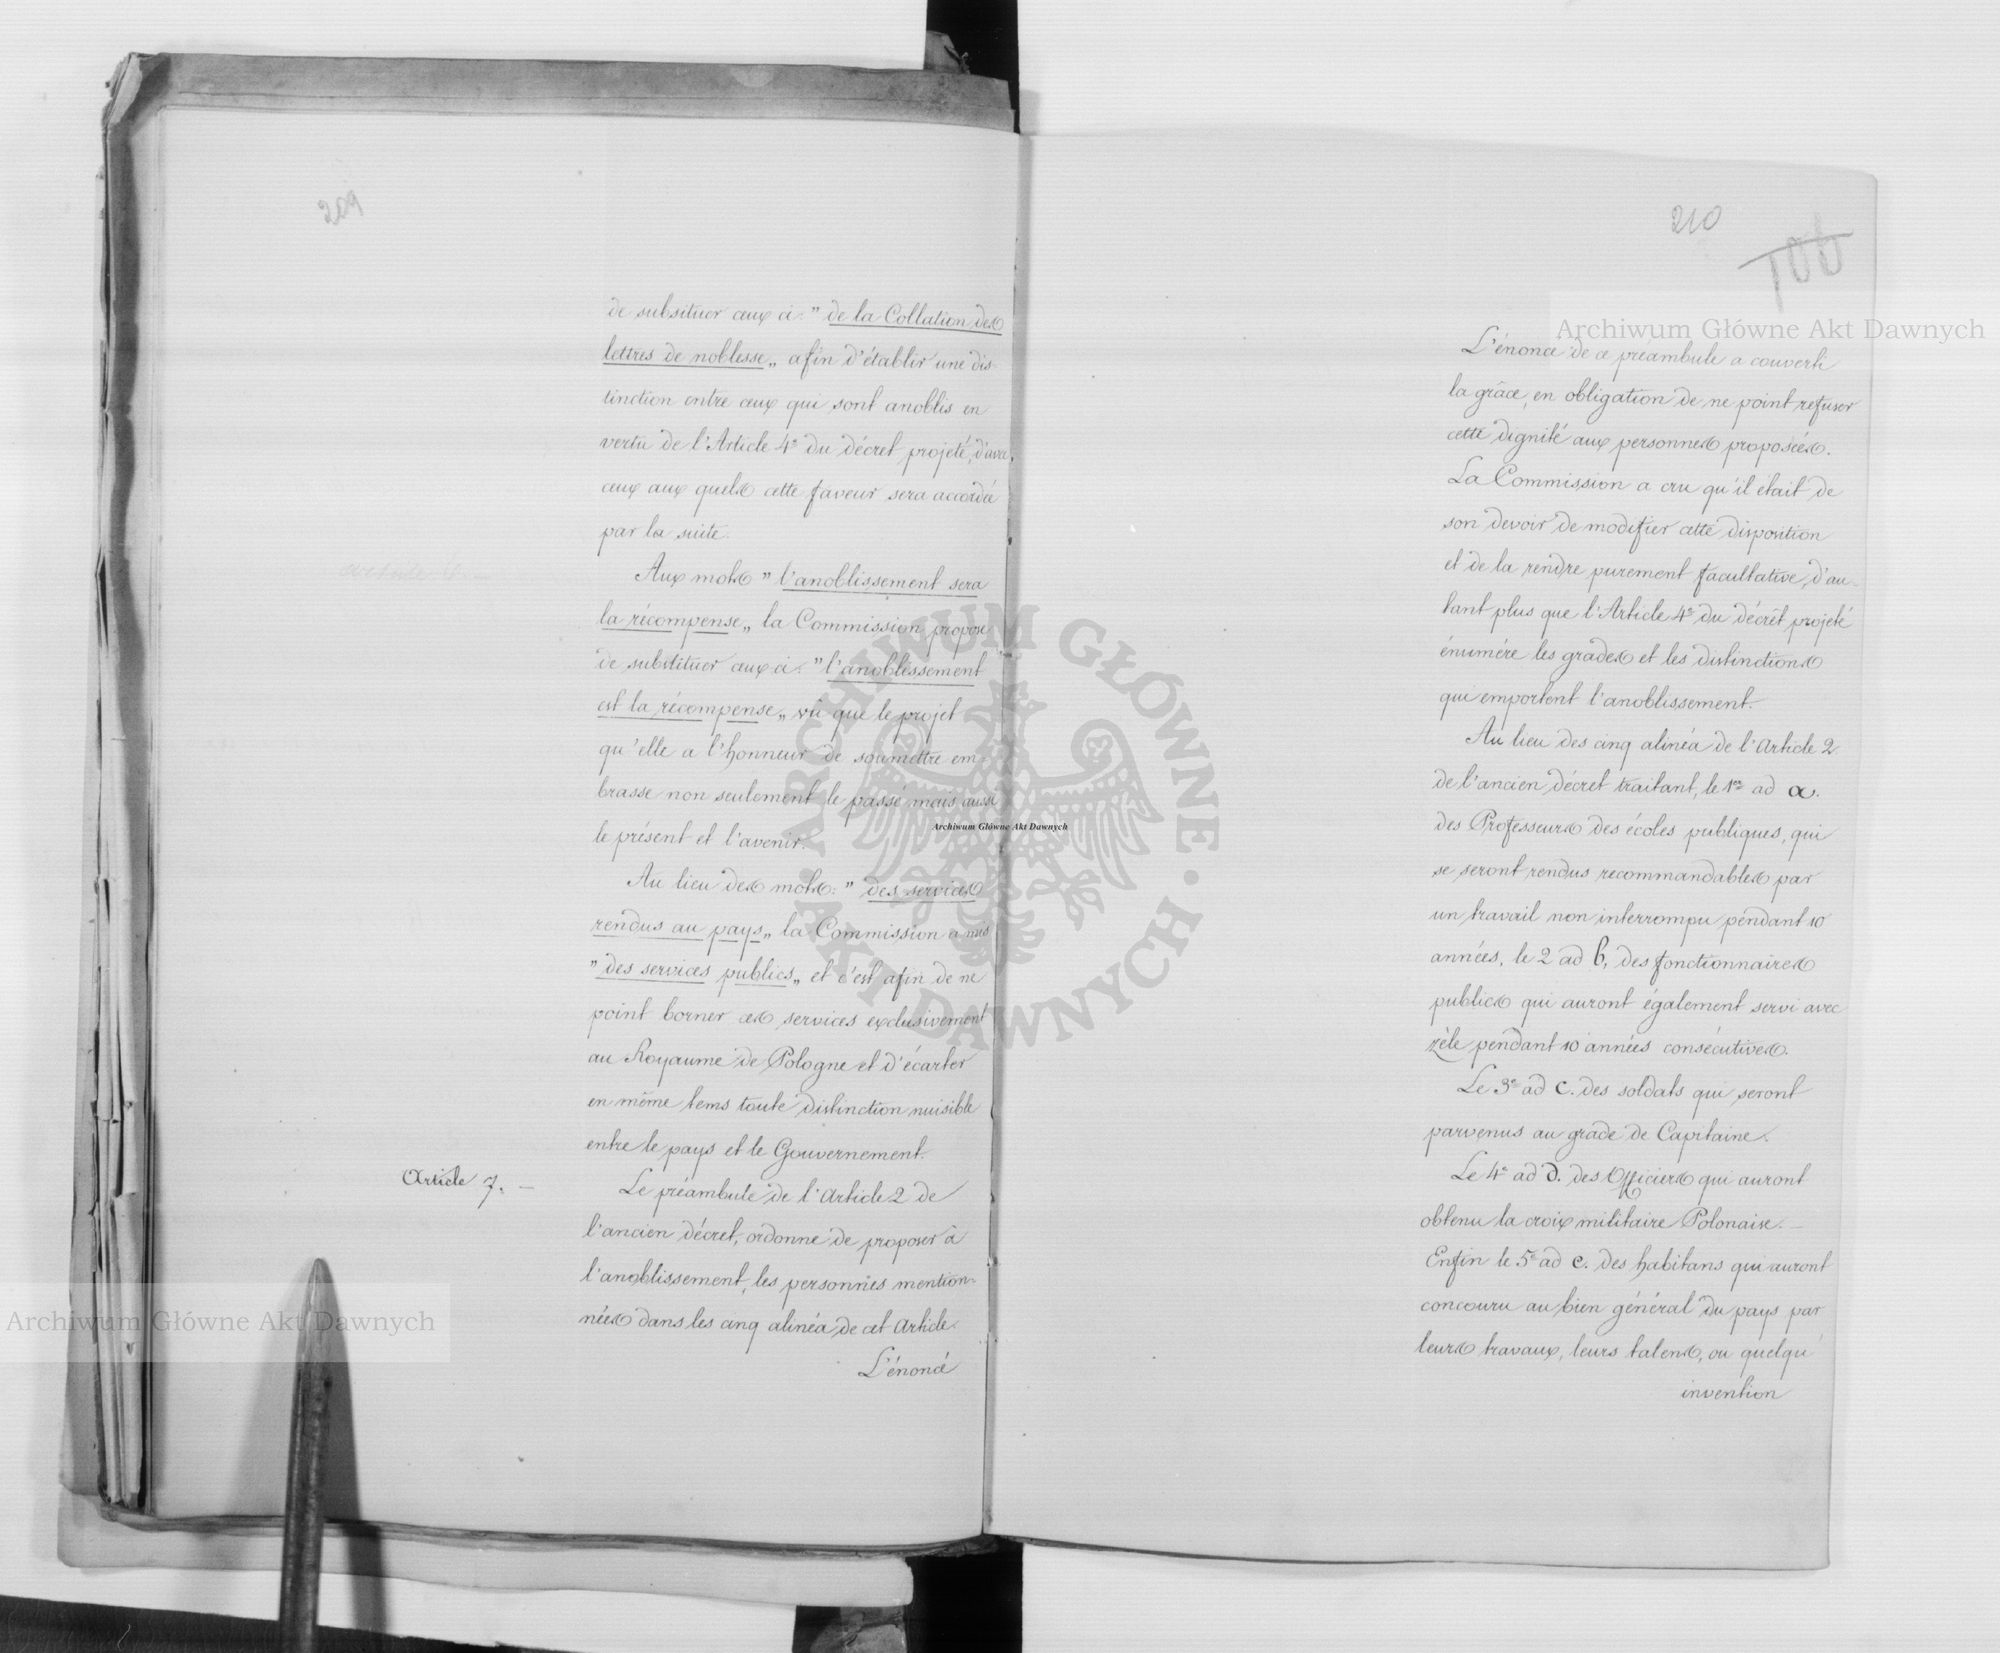 209
de subsituer ceux ci: " de la Collation des
lettres de noblesse „ afin d'établir une dis-
tinction entre ceux qui sont anoblis en
vertu de l'Article 4e du décret projeté, d'avec
ceux aux quels cette faveur sera accordée
par la suite.
Aux mots " l'anoblissement sera
la récompense „ la Commission propose
de substituer ceux ci: " l'anoblissement
est la récompense „ vû que le projet
qu'elle a l'honneur de soumettre em-
brasse non seulement le passé mais aussi
le présent et l'avenir.
Au lieu des mots: " des services
rendus au pays „ la Commission a mis
" des services publics „ et c'est afin de ne
point borner ces services exclusivement
au Royaume de Pologne et d'écarter
en même tems toute distinction nuisible
entre le pays et le Gouvernement.
Article 7. —
Le préambule de l'Article 2 de
l'ancien décret, ordonne de proposer à
l'anoblissement, les personnes mention-
nées dans les cinq alinéa de cet Article.
L'énoncé
210
106
L'énoncé de ce préambule a couverti
la grâce, en obligation de ne point refuser
cette dignité aux personnes proposées.
La Commission a cru qu'il était de
son devoir de modifier cette disposition
et de la rendre purement facultative, d'au-
tant plus que l'Article 4e du décret projeté
énumére les grades et les distinctions
qui emportent l'anoblissement.
Au lieu des cinq alinéa de l'Article 2.
de l'ancien décret traitant, le 1er ad a.
des Professeurs des écoles publiques, qui
se seront rendus recommandables par
un travail non interrompu pendant 10
années, le 2 ad b, des fonctionnaires
publics qui auront également servi avec
zèle pendant 10 années consécutives.
Le 3e ad c. des soldats qui seront
parvenus au grade de Capitaine.
Le 4e ad d. des Officiers qui auront
obtenu la croix militaire Polonaise. —
Enfin le 5e ad e. des habitans qui auront
concouru au bien général du pays par
leurs travaux, leurs talens, ou quelque
invention
Archiwum Główne Akt Dawnych
Archiwum Główne Akt Dawnych
Archiwum Główne Akt Dawnych
ARCHIWUM GŁÓWNE · AKT DAWNYCH ·